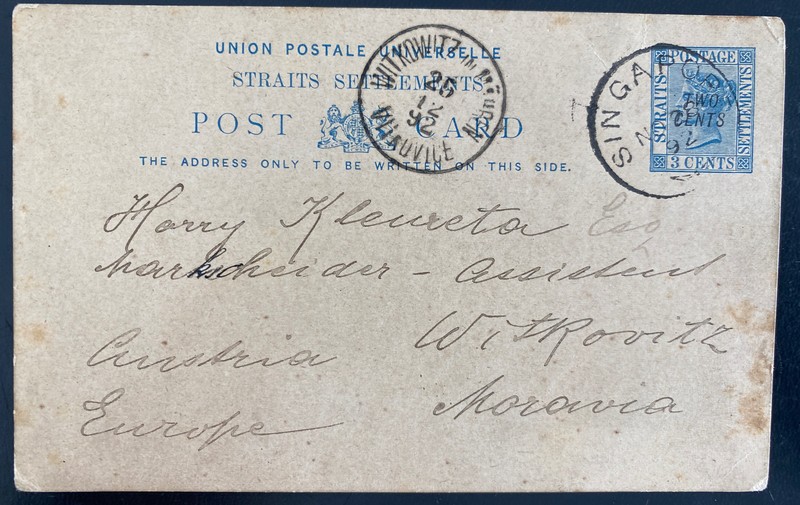 UNION POSTALE UNIVERSELLE
STRAITS SETTLEMENTS
POST CARD
THE ADDRESS ONLY TO BE WRITTEN ON THIS SIDE.
WITKOWITZ in MÄHREN
25
12
92
VITKOVICE
SINGAPORE
N
92
POSTAGE
STRAITS
SETTLEMENTS
TWO
CENTS
3 CENTS
Harry Esq
Markscheider - Assistent
Witkovitz
Austria
Moravia
Europe